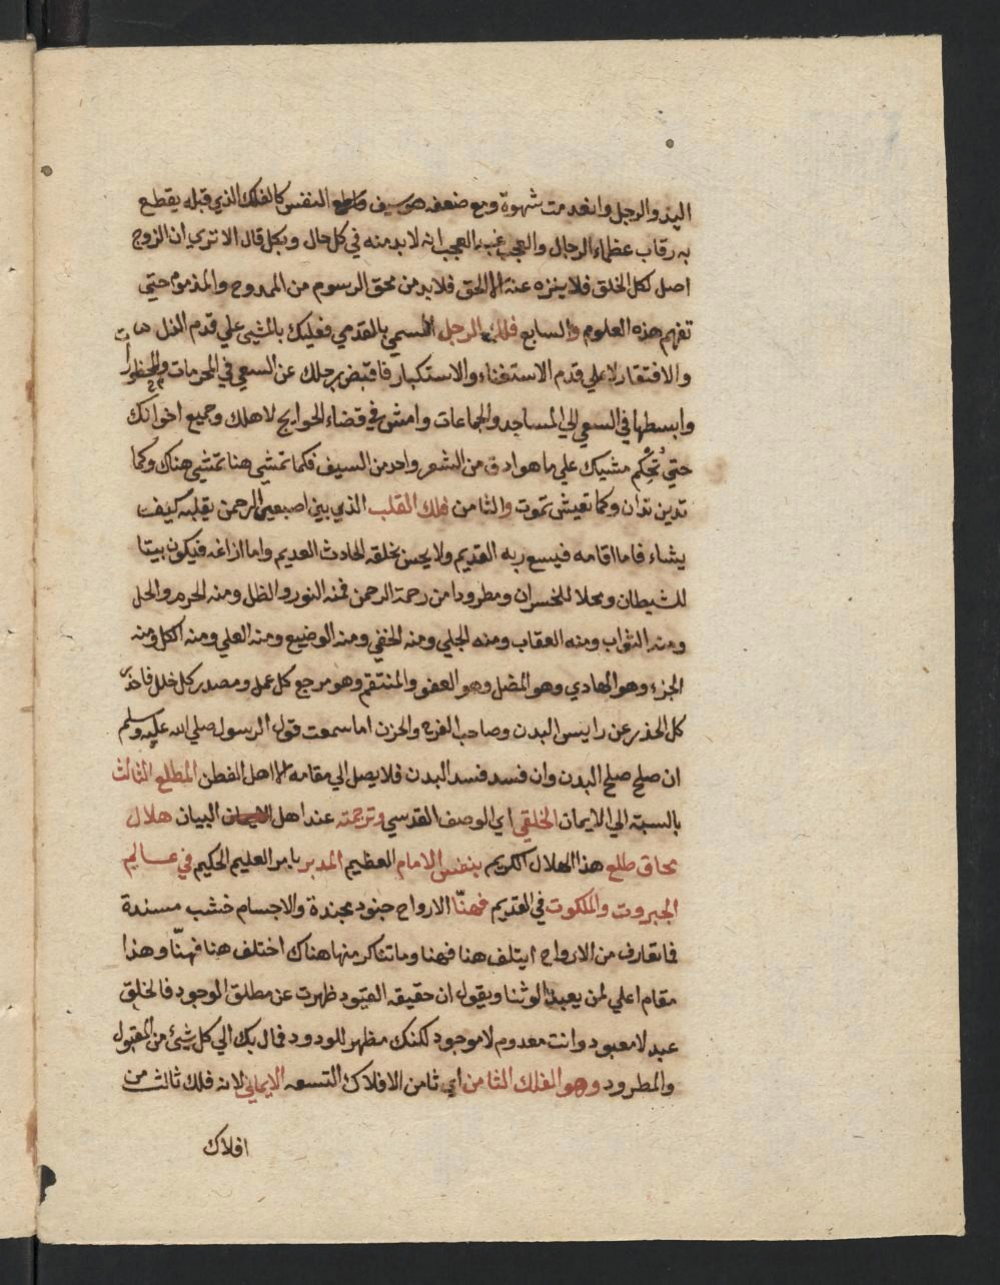 اليد والرجل وانعدمت شهوة ومع ضعفه هو سيف قاطع النفس كالفلك الذي قبله يقطع
به رقاب عظماء الرجال والعجب غيبه العجب انه لا بد منه في كل حال وبكل قال الا تري ان الزوج
اصل لكل الخلق فلا ينزه عنه الا الحق فلا بد من محق الرسوم من الممدوح والمذموم حتي
تفهم هذه العلوم والسابع فلك الرجل المسمي بالقدمي فعليك بالمشي علي قدم الذل
والافتقار لا علي قدم الاستغناء والاستكبار فاقبض برجلك عن السعي في المحرمات والمحظورات
وابسطها في السعي الي المساجد والجماعات وامش في قضاء الحوايج لاهلك وجميع اخوانك
حتي تُحكِم مشيك علي ما هو ادق من الشعر واحد من السيف فكما تمشي هنا تمشي هناك وكما
تدين تدان وكما تعيش تموت والثامن فلك القلب الذي بين اصبعي الرحمن يقلبه كيف
يشاء فاما اقامه فيسع ربه القديم ولا يحس بخلقه الحادث العديم واما ازاغه فيكون بيتا
للشيطان ومحلا للخسران ومطرودا من رحمة الرحمن فمنه النور والظل ومنه الحرم والحل
ومنه الثواب ومنه العقاب ومنه الجلي ومنه الخفي ومنه الوضيع ومنه العلي ومنه الكل ومنه
الجزء وهو الهادي وهو المضل وهو العفو والمنتقم وهو مرجع كل عمل ومصدر كل خلل فاحذر
كل الحذر عن رايس البدن وصاحب الفرح والحزن اما سمعت قول الرسول صلي الله عليه وسلم
ان صلح صلح البدن وان فسد فسد البدن فلا يصل الي مقامه الا اهل الفطن المطلع الثالث
بالنسبة الي الايمان الخلقي اي الوصف القدسي وترجمته عند اهل البيان هلال
محاق طلع هذا الهلال الكريم بنفس الامام العظيم المدبر بامر العليم الحكيم في عالم
الجبروت والملكوت في القديم فهنّا الارواح جنود مجندة والاجسام خشب مسندة
فما تعارف من الارواح ايتلف هنا فهنا وما تناكر منها هناك اختلف هنا فهنّا وهذا
مقام اعلي لمن يعبد الوثنا ويقول ان حقيقه القيود ظهرت عن مطلق الوجود فالخلق
عبد لا معبود وانت معدوم لا موجود لكنك مظهر للودود فمال بك الي كل شيء من المقبول
والمطرود وهو الفلك الثامن اي ثامن الافلاك التسعه الايماني لانه فلك ثالث من
افلاك